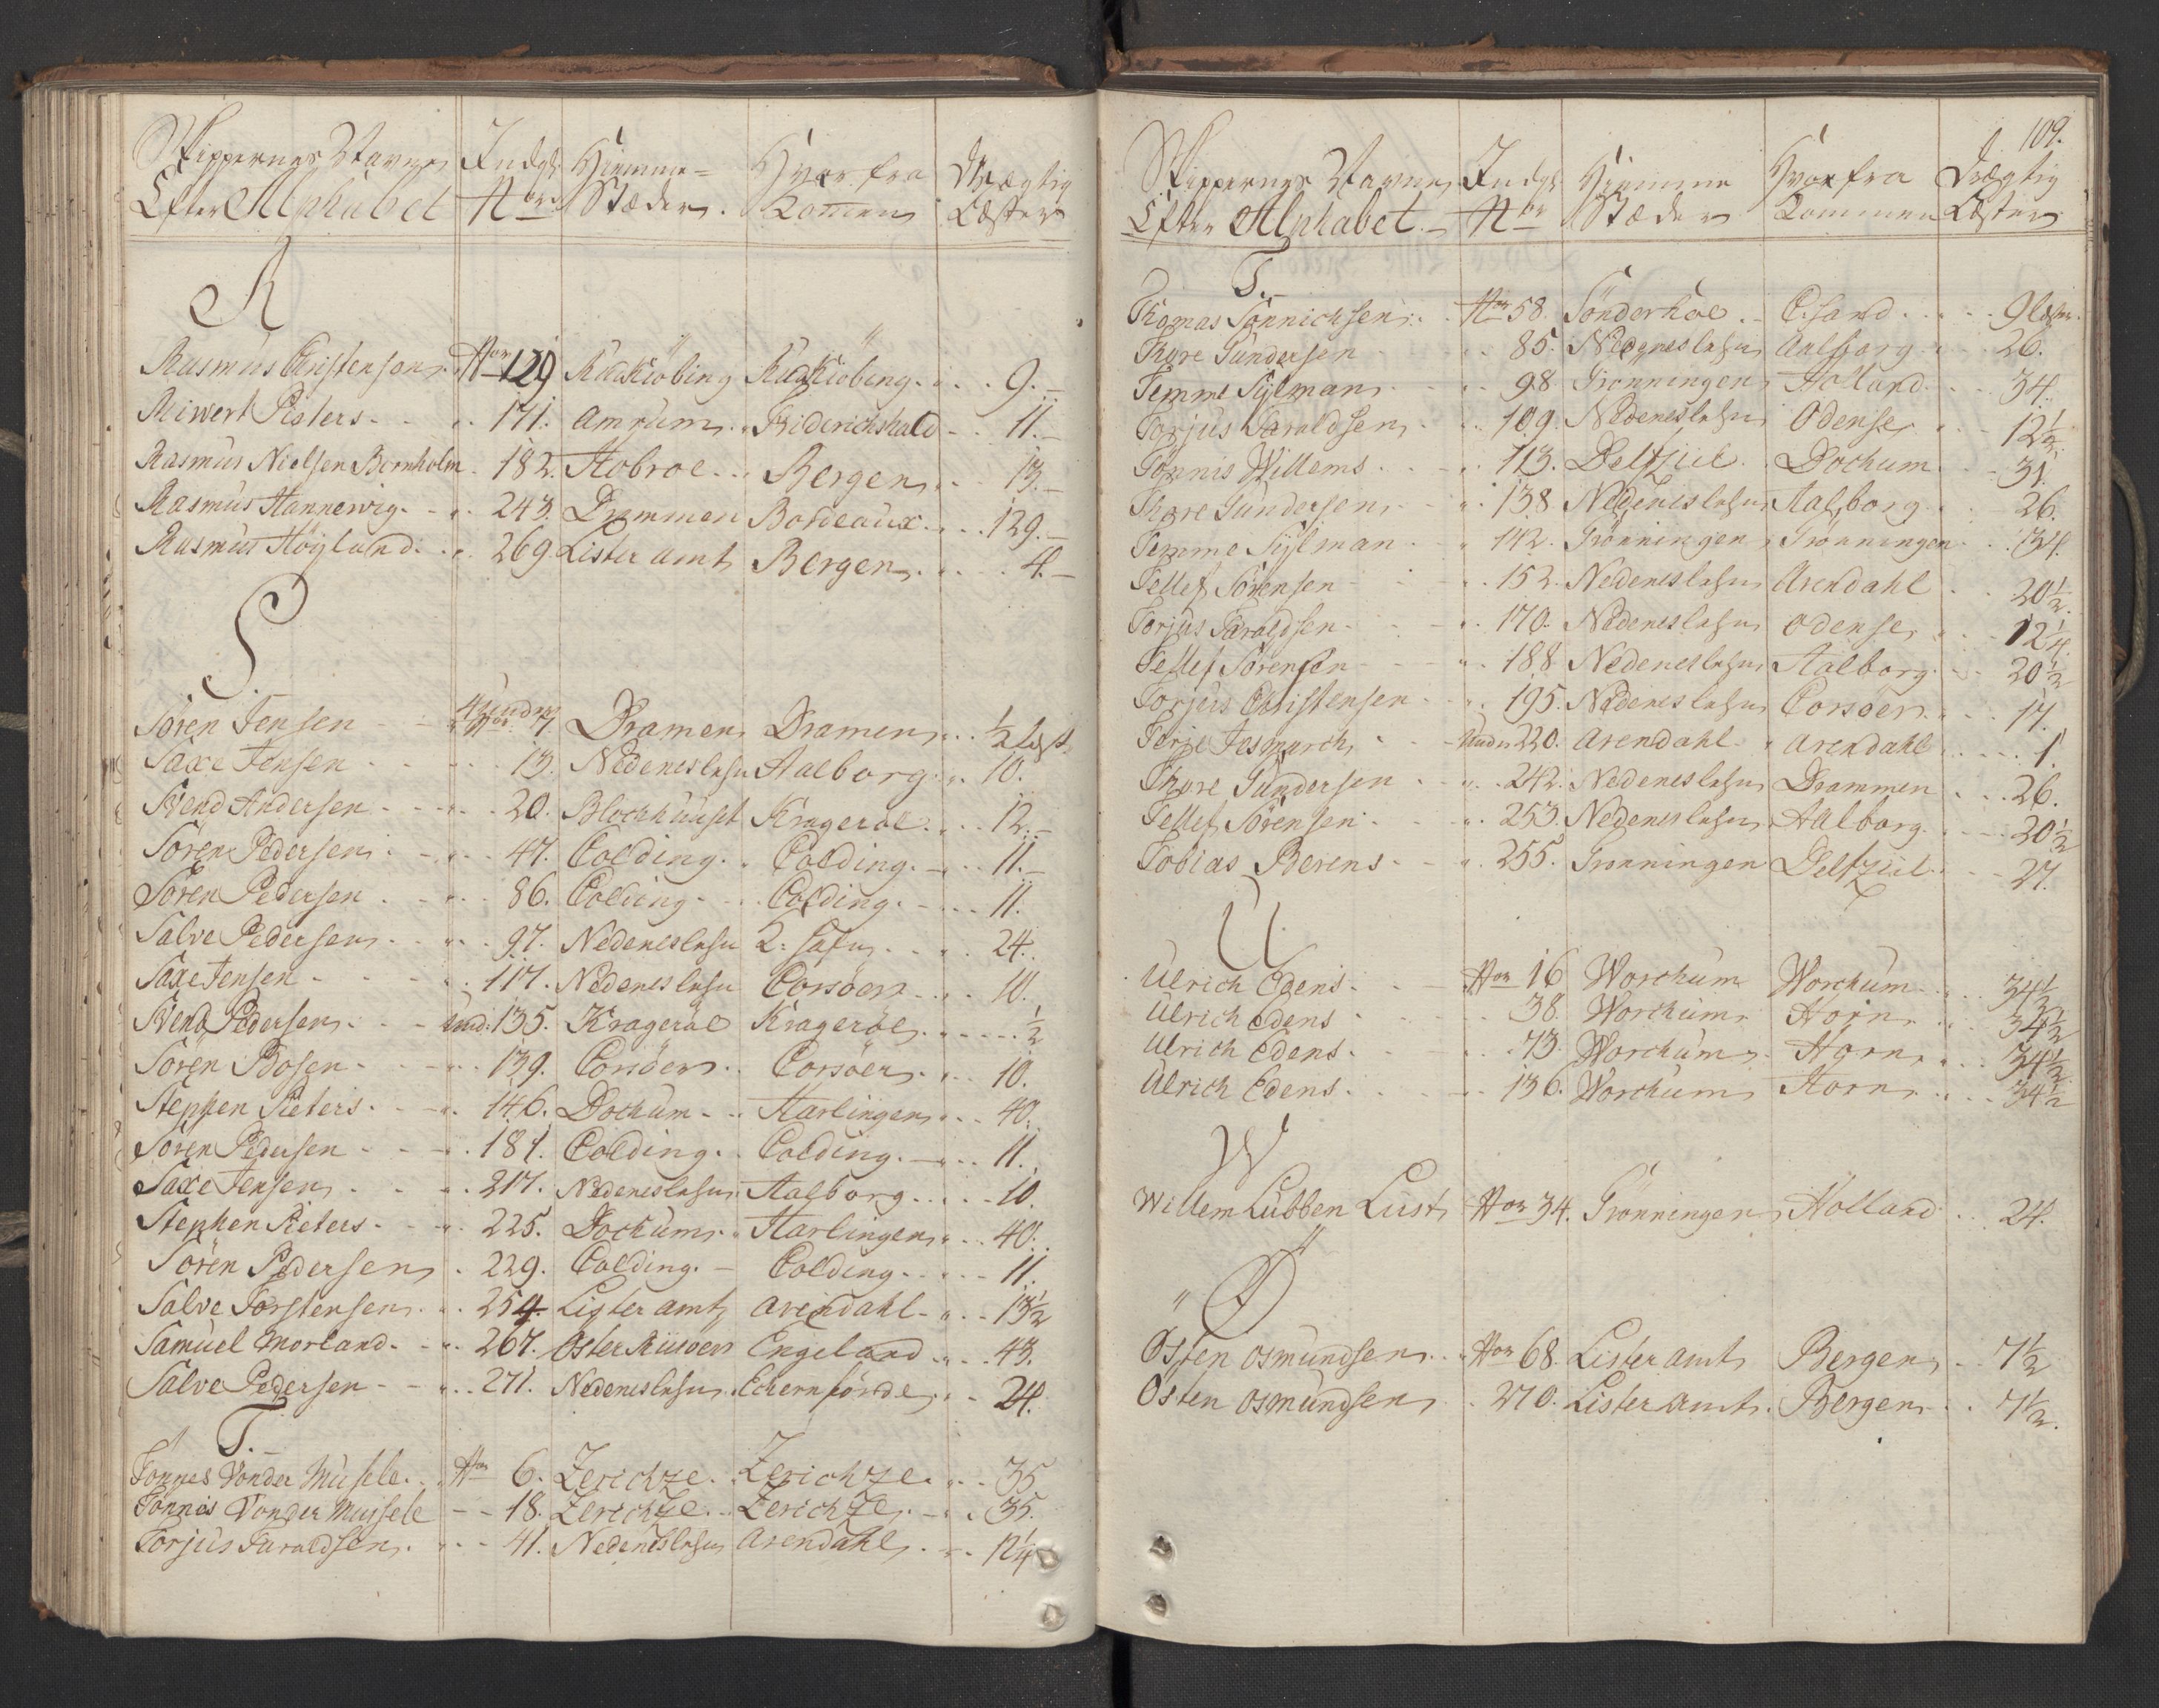 Skippernes Navne Indgl: Hiemme= Hvor fra Drægtig
Efter Alphabet No Stæder. Kommen Læster
R
Rasmus Christensen. No 129 Rudkiöbing Rudkiöbing. 9.
Riwert Peters 171. Amrum Friderichshald 11.
Rasmus Nielsen Bornholm 182. Hobroe Bergen 13.
Rasmus Hannevig. 243. Drammen Bordeaux 129.
Rasmus Höyland. 269 Lister amt Bergen 4.
S
Sören Jensen No 7. Dramen Dramen ½ Læst
Saxe Jensen 13. Nedeneslehn Aalborg 10.
Svend Andersen 20. Blockhuuset Krageröe 12.
Sören Pedersen 47. Colding. Colding. 11.
Sören Pedersen 86. Colding Colding. 11.
Salve Pedersen 97. Nedeneslehn 24.
Saxe Jensen 117. Nedeneslehn Corsöer 10.
Svend Pedersen 135. Krageröe Krageröe ½
Sören Bosen 139. Corsöer Corsöer 10.
Stephen Pieters. 146. Dockum Harlingen 40.
Sören Pedersen 181. Colding. Colding. 11.
Saxe Jensen 217. Nedeneslehn Aalborg 10.
Stephen Pieters 225. Dockum Harlingen 40.
Sören Pedersen 229. Colding. Colding 11.
Salve Torstensen 254. Lister amt Arendahl 13½
Samuel Morland. 267. Öster Riisöer Engeland 43.
Salve Pedersen 271. Nedeneslehn Echernförde 24.
T.
Tonnes Vonder Musele. No 6. Zerichze. Zerichze. 35
Tönnes Vonder Mussele 18. Zerichze Zerichze 35.
Torjus Taraldsen. 41. Nedeneslehn Arendahl 12¼
109.
Skippernes Navne Indgl Hiemme Hvor fra Drægtig
Efter Alphabet. No Stæder Kommen Læster
T.
Thomas Sönnichsen No 58. Sönderhoe 9 Læster.
Thore Gundersen 85. Nedeneslehn Aalborg 26.
Temme Sylman 98. Grönningen Holland 34.
Torjus Taraldsen 109. Nedeneslehn Odense 12½
Tönnis Willems 113. Delfziil Dockum 31.
Thore Gundersen 138. Nedeneslehn Aalborg 26.
Temme Sylman 142. Grönningen Grönningen 34.
Tellef Sörensen 152. Nedeneslehn Arendahl 20½.
Torjus Taraldsen 170. Nedeneslehn Odense 12¼.
Tellef Sörensen 188. Nedeneslehn Aalborg 20½
Torjus Christensen 195. Nedeneslehn Corsöer 17.
Terje Jesmarch 220. Arendahl Arendahl 1.
Thore Gundersen 242. Nedeneslehn Drammen 26.
Tellef Sörensen 253. Nedeneslehn Aalborg 20½
Tobias Berens 255. Grönningen Delfziil 27.
U
Ulrich Edens. No 16 Worchum Worchum 34½
Ulrich Edens 38. Worchum Horn 34½
Ulrich Edens. 73. Worchum Horn 34½
Ulrich Edens. 136. Worchum Horn 34½
W
Willem Lubben Lust No 34. Grönningen Holland 24.
Ö
Östen Osmundsen No 68. Lister amt Bergen 7½
Östen Osmundsen 270. Lister amt. Bergen 7½.